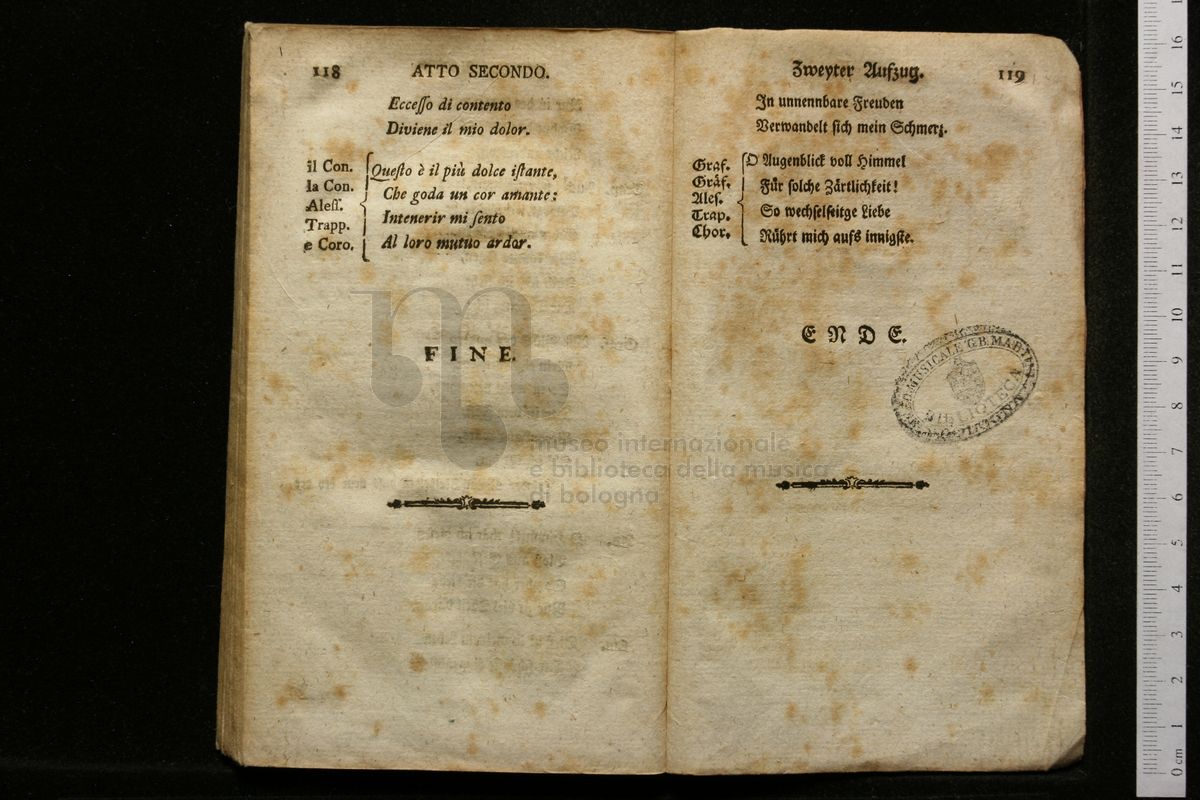 118 ATTO SECONDO.
Ecceſſo di contento
Diviene il mio dolor.
il Con.
la Con.
Aleſſ.
Trapp.
e Coro.
Queſto è il più dolce iſtante,
Che goda un cor amante:
Intenerir mi ſento
Al loro mutuo ardor.
FINE.
Zweyter Aufzug. 119
In unnennbare Freuden
Verwandelt ſich mein Schmerz.
Graf.
Gräf.
Aleſ.
Trap.
Chor.
O Augenblick voll Himmel
Für ſolche Zärtlichkeit!
So wechſelſeitge Liebe
Rührt mich aufs innigſte.
ENDE.
MUSICALE G.B. MARTINI
BIBLIOTECA
BOLOGNA
museo internazionale
e biblioteca della musica
di bologna
0 cm 1 2 3 4 5 6 7 8 9 10 11 12 13 14 15 16